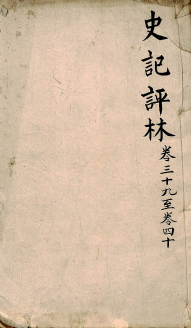 史記評林
卷三十九至卷四十